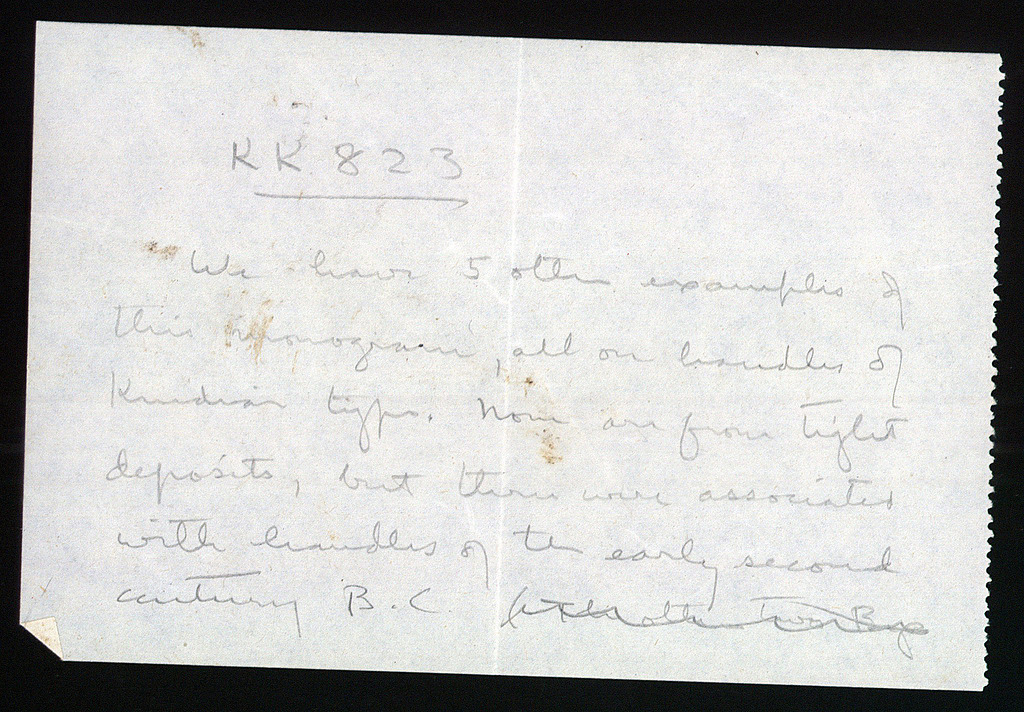 KK 823
We have 5 other examples of
this monogram, all on handles of
Knidian type. None are from tight
deposits, but three were associated
with handles of the early second
century B.C.